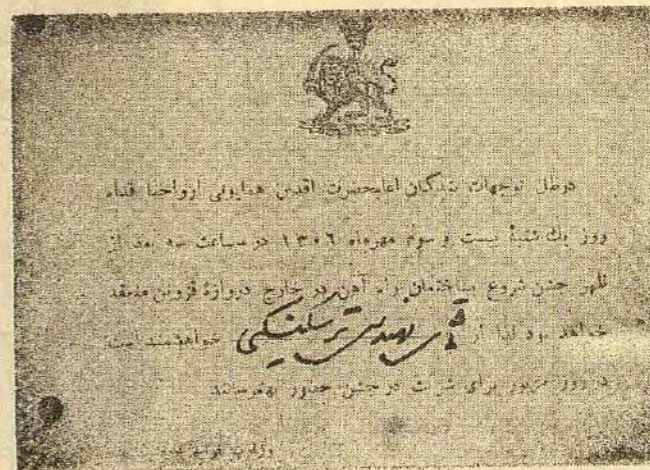 در ظل توجهات بندگان اعلیحضرت اقدس همایونی ارواحنا فداه
روز یك شنبهٔ بیست و سوم مهرماه ۱۳۰۶ در ساعت سه بعد از
ظهر جشن شروع ساختمان راه آهن در خارج دروازهٔ قزوین منعقد
خواهد بود لذا از آقای مهندس خواهشمند است
در روز مزبور برای شرکت در جشن حضور بهمرسانند
وزارت